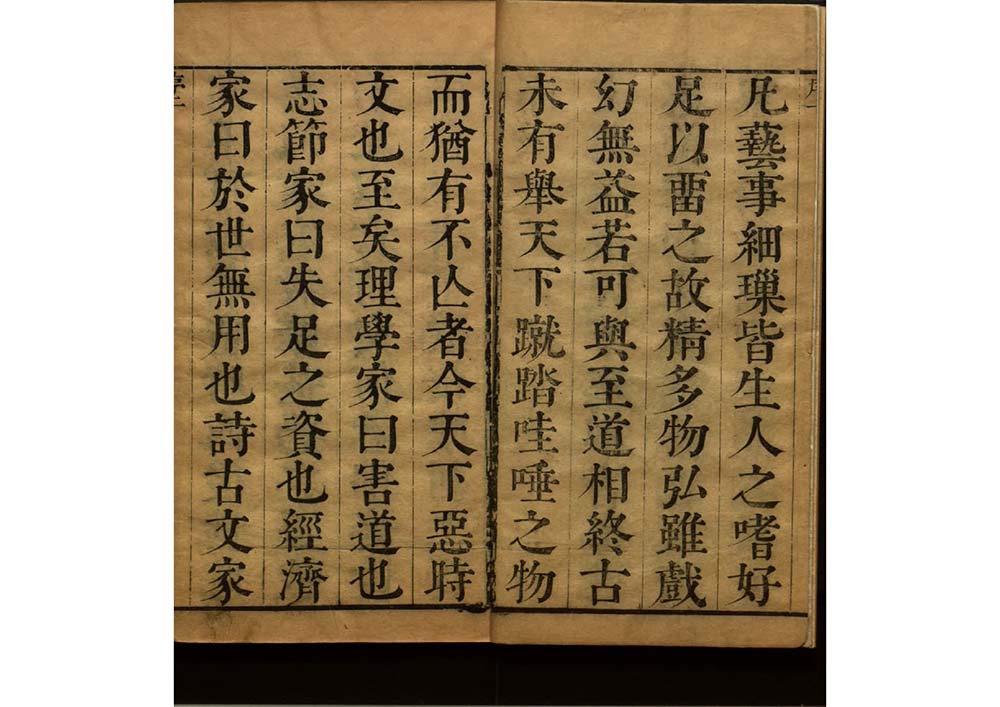 凡藝事細璅皆生人之嗜好
足以畱之故精多物弘雖戲
幻無益若可與至道相終古
未有舉天下蹴踏哇唾之物
而猶有不亾者今天下惡時
文也至矣理學家曰害道也
志節家曰失足之資也經濟
家曰於世無用也詩古文家